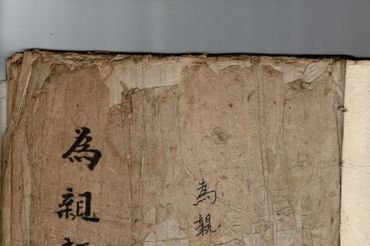 為親
為親